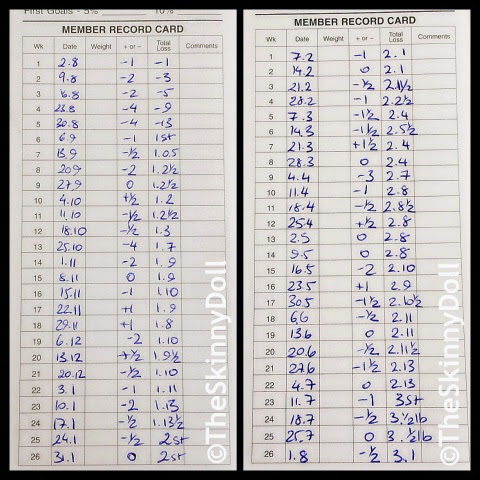 First Goals - 5% 10%
MEMBER RECORD CARD
Wk Date Weight + or – Total Loss Comments
1 2.8 -1 -1
2 9.8 -2 -3
3 16.8 -2 -5
4 23.8 -4 -9
5 30.8 -4 -13
6 6.9 -1 1st
7 13.9 -½ 1.0.5
8 20.9 -2 1.2½
9 27.9 0 1.2½
10 4.10 +½ 1.2
11 11.10 -½ 1.2½
12 18.10 -½ 1.3
13 25.10 -4 1.7
14 1.11 -2 1.9
15 8.11 0 1.9
16 15.11 -1 1.10
17 22.11 +1 1.9
18 29.11 +1 1.8
19 6.12 -2 1.10
20 13.12 +½ 1.9½
21 20.12 -½ 1.10
22 3.1 -1 1.11
23 10.1 -2 1.13
24 17.1 -½ 1.13½
25 24.1 -½ 2st
26 31.1 0 2st
©TheSkinnyDoll
MEMBER RECORD CARD
Wk Date Weight + or – Total Loss Comments
1 7.2 -1 2.1
2 14.2 0 2.1
3 21.2 -½ 2.1½
4 28.2 -1 2.2½
5 7.3 -1½ 2.4
6 14.3 -1½ 2.5½
7 21.3 +1½ 2.4
8 28.3 0 2.4
9 4.4 -3 2.7
10 11.4 -1 2.8
11 18.4 -½ 2.8½
12 25.4 +½ 2.8
13 2.5 0 2.8
14 9.5 0 2.8
15 16.5 -2 2.10
16 23.5 +1 2.9
17 30.5 -1½ 2.10½
18 6.6 -½ 2.11
19 13.6 0 2.11
20 20.6 -½ 2.11½
21 27.6 -1½ 2.13
22 4.7 0 2.13
23 11.7 -1 3st
24 18.7 -½ 3.½lb
25 25.7 0 3.½lb
26 1.8 -½ 3.1
©TheSkinnyDoll